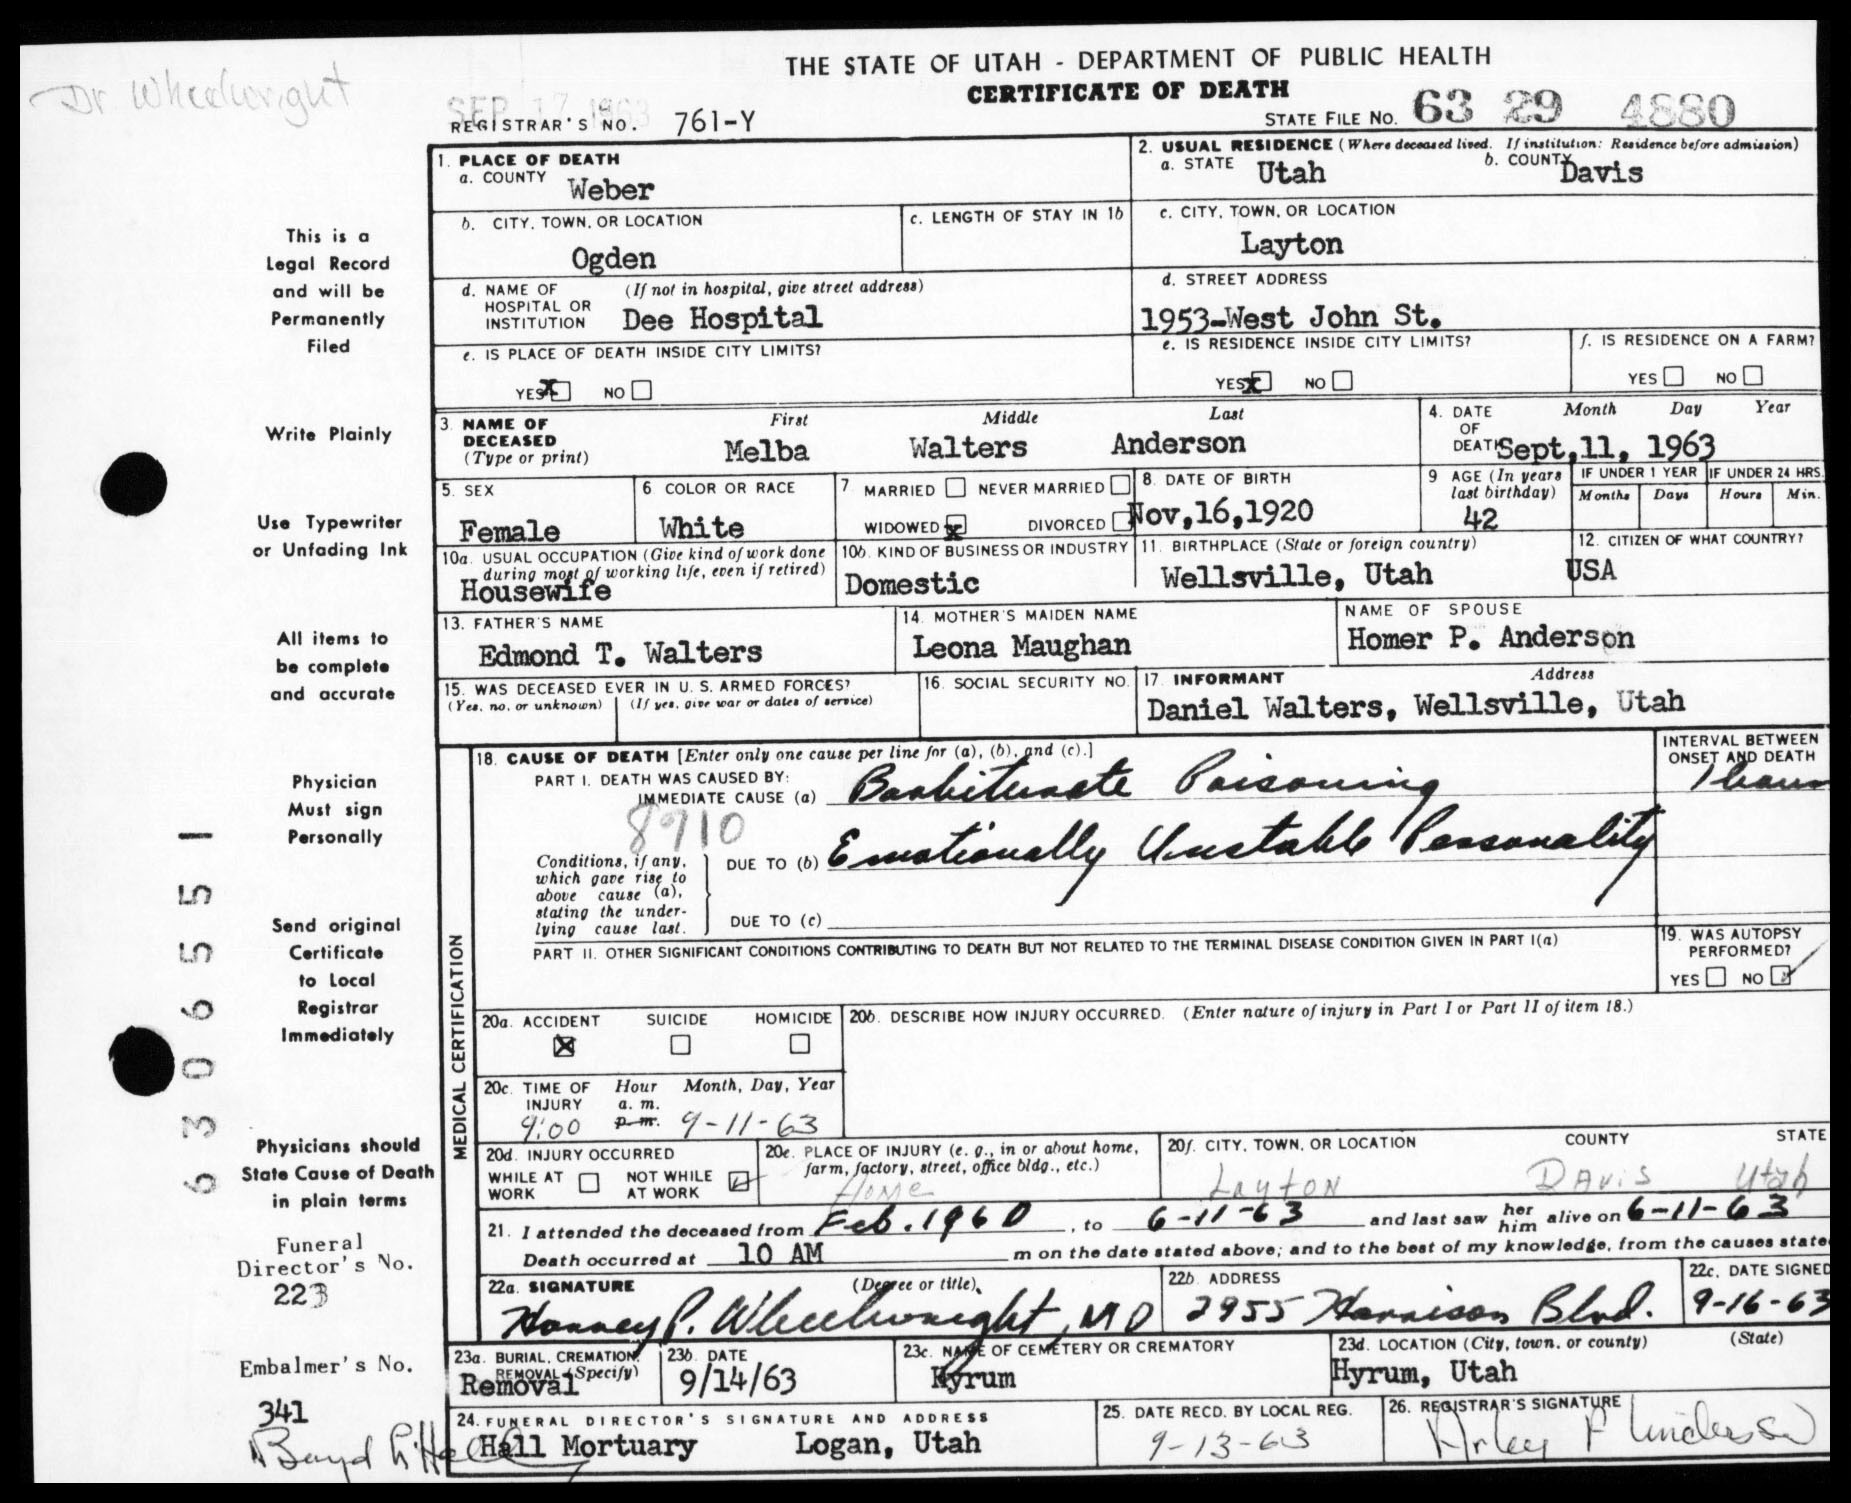 Dr. Wheelwright
THE STATE OF UTAH - DEPARTMENT OF PUBLIC HEALTH
CERTIFICATE OF DEATH
SEP 17 1963
REGISTRAR'S NO. 761-Y
STATE FILE NO. 63 29 4880
This is a
Legal Record
and will be
Permanently
Filed
Write Plainly
Use Typewriter
or Unfading Ink
All items to
be complete
and accurate
Physician
Must sign
Personally
Send original
Certificate
to Local
Registrar
Immediately
Physicians should
State Cause of Death
in plain terms
Funeral
Director's No.
223
Embalmer's No.
341
6 3 0 6 5 5 1
1. PLACE OF DEATH
a. COUNTY Weber
2. USUAL RESIDENCE (Where deceased lived. If institution: Residence before admission)
a. STATE Utah b. COUNTY Davis
b. CITY, TOWN, OR LOCATION
Ogden
c. LENGTH OF STAY IN 1b
c. CITY, TOWN, OR LOCATION
Layton
d. NAME OF (If not in hospital, give street address)
HOSPITAL OR
INSTITUTION Dee Hospital
d. STREET ADDRESS
1953-West John St.
e. IS PLACE OF DEATH INSIDE CITY LIMITS?
YES X NO
e. IS RESIDENCE INSIDE CITY LIMITS?
YES X NO
f. IS RESIDENCE ON A FARM?
YES NO
3. NAME OF
DECEASED
(Type or print)
First Middle Last
Melba Walters Anderson
4. DATE
OF
DEATH
Month Day Year
Sept,11, 1963
5. SEX
Female
6. COLOR OR RACE
White
7. MARRIED NEVER MARRIED
WIDOWED X DIVORCED
8. DATE OF BIRTH
Nov,16,1920
9 AGE (In years
last birthday)
42
IF UNDER 1 YEAR
Months Days
IF UNDER 24 HRS.
Hours Min.
10a. USUAL OCCUPATION (Give kind of work done
during most of working life, even if retired)
Housewife
10b. KIND OF BUSINESS OR INDUSTRY
Domestic
11. BIRTHPLACE (State or foreign country)
Wellsville, Utah
12. CITIZEN OF WHAT COUNTRY?
USA
13. FATHER'S NAME
Edmond T. Walters
14. MOTHER'S MAIDEN NAME
Leona Maughan
NAME OF SPOUSE
Homer P. Anderson
15. WAS DECEASED EVER IN U. S. ARMED FORCES?
(Yes, no, or unknown) (If yes, give war or dates of service)
16. SOCIAL SECURITY NO.
17. INFORMANT Address
Daniel Walters, Wellsville, Utah
MEDICAL CERTIFICATION
18. CAUSE OF DEATH [Enter only one cause per line for (a), (b), and (c).]
PART I. DEATH WAS CAUSED BY:
IMMEDIATE CAUSE (a) Barbiturate Poisoning
INTERVAL BETWEEN
ONSET AND DEATH
1 hour
8710
Conditions, if any,
which gave rise to
above cause (a),
stating the under-
lying cause last.
DUE TO (b) Emotionally Unstable Personality
DUE TO (c)
PART II. OTHER SIGNIFICANT CONDITIONS CONTRIBUTING TO DEATH BUT NOT RELATED TO THE TERMINAL DISEASE CONDITION GIVEN IN PART I(a)
19. WAS AUTOPSY
PERFORMED?
YES NO
20a. ACCIDENT SUICIDE HOMICIDE
X
20b. DESCRIBE HOW INJURY OCCURRED. (Enter nature of injury in Part I or Part II of item 18.)
20c. TIME OF Hour Month, Day, Year
INJURY a. m.
9:00 p. m. 9-11-63
20d. INJURY OCCURRED
WHILE AT NOT WHILE
WORK AT WORK
20e. PLACE OF INJURY (e. g., in or about home,
farm, factory, street, office bldg., etc.)
Home
20f. CITY, TOWN, OR LOCATION COUNTY STATE
Layton Davis Utah
21. I attended the deceased from Feb. 1960, to 6-11-63 and last saw her him alive on 6-11-63
Death occurred at 10 AM m on the date stated above; and to the best of my knowledge, from the causes state
22a. SIGNATURE (Degree or title)
Harvey P. Wheelwright, MD
22b. ADDRESS
2955 Harrison Blvd.
22c. DATE SIGNED
9-16-63
23a. BURIAL, CREMATION,
REMOVAL (Specify)
Removal
23b. DATE
9/14/63
23c. NAME OF CEMETERY OR CREMATORY
Hyrum
23d. LOCATION (City, town, or county) (State)
Hyrum, Utah
24. FUNERAL DIRECTOR'S SIGNATURE AND ADDRESS
Hall Mortuary Logan, Utah
25. DATE RECD. BY LOCAL REG.
9-13-63
26. REGISTRAR'S SIGNATURE
Boyd